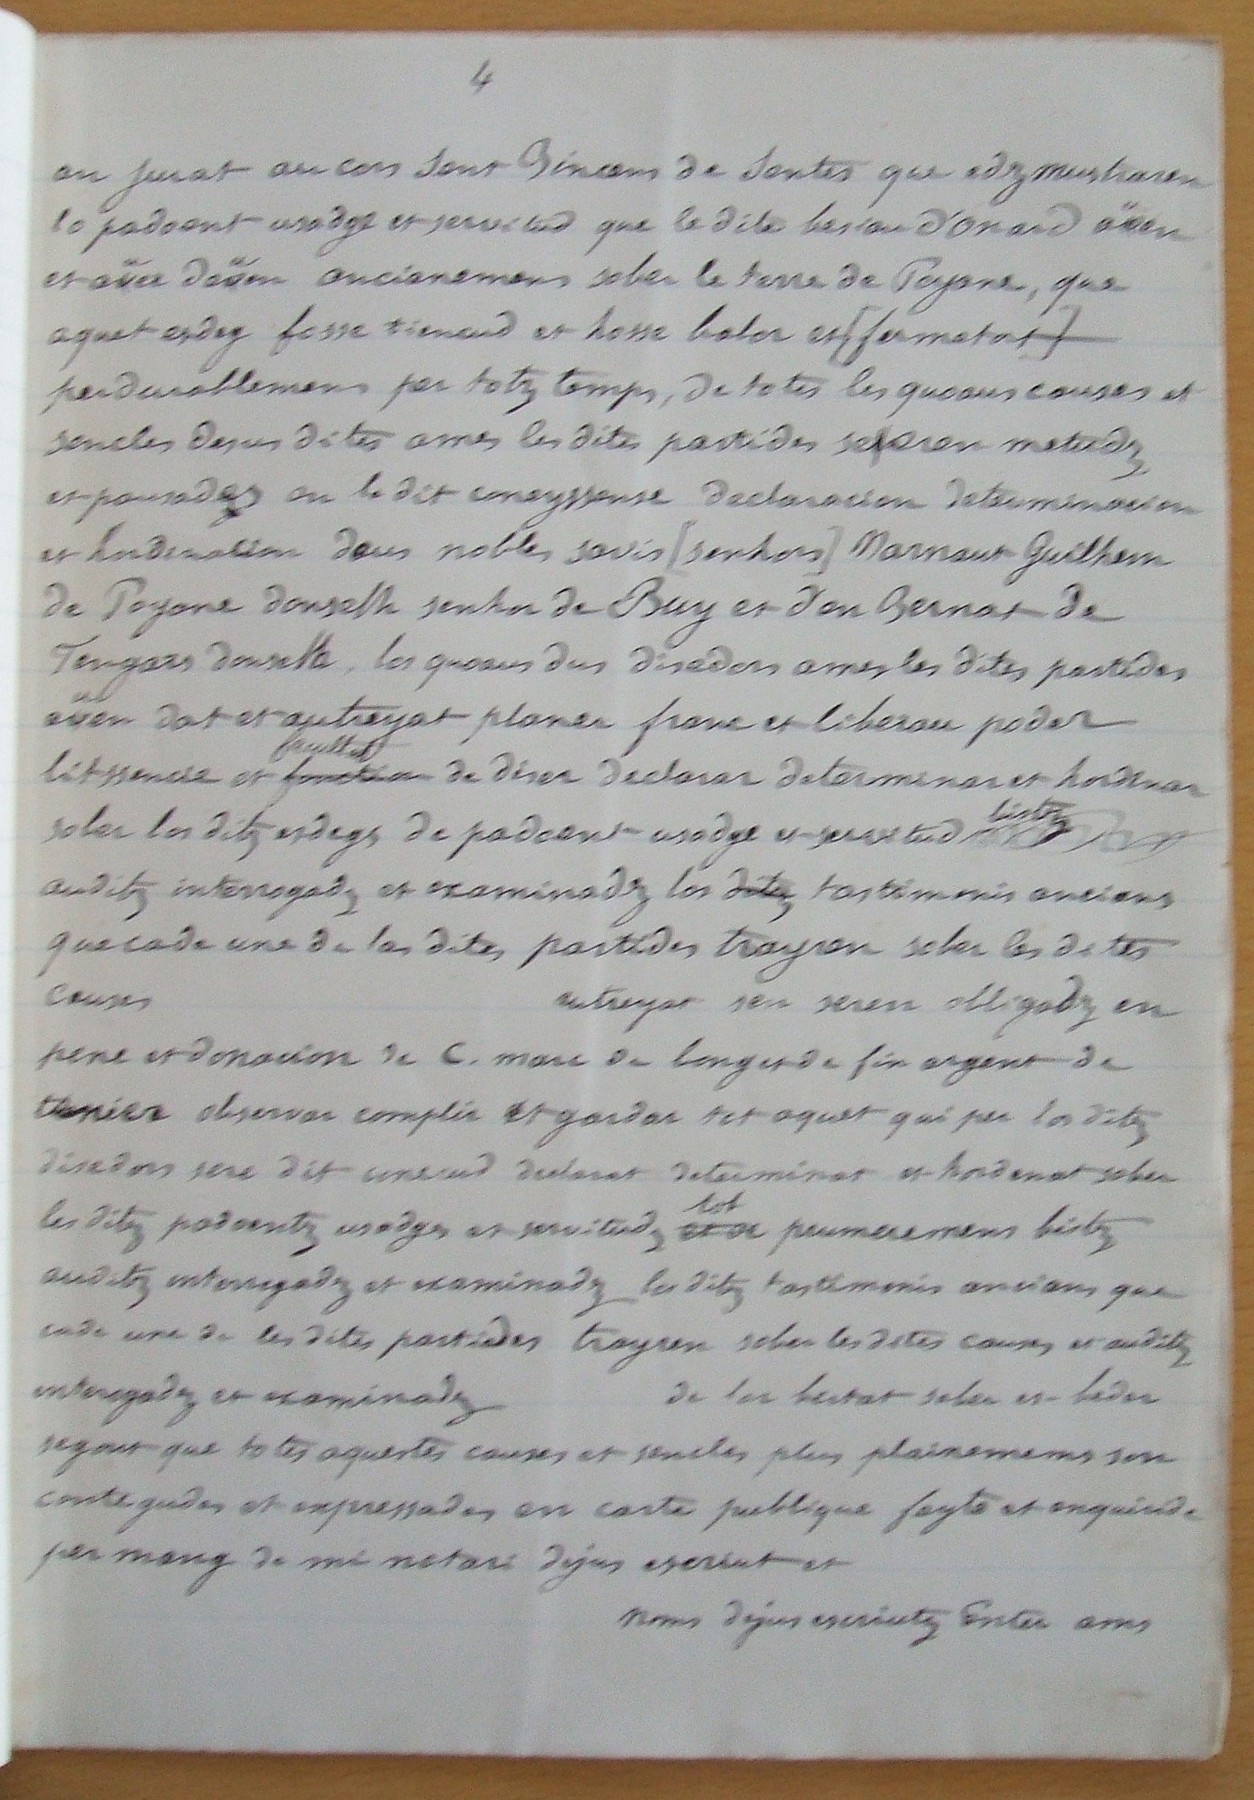 4
an jurat au cors Sent Bincens de Sentes que edz mustraren
lo padoent usadge et servitud que le dite besiau d'Onard aüen
et aüce deüen ancianemens sober le terre de Poyane, que
aquet esdeg fosse tiencud et hosse balor et [fermetat]
perdurablemens per totz temps, de totes les quoaus causes et
sencles desus dites ames les dites partides seseren metudz
et pausades en le dit coneyssense declaracion determinacion
et hordenacion deus nobles savis [senhors] Narnaut Guilhem
de Poyane donselh senhor de Buy et d'en Bernat de
Tengars donselh. los quoaus dus disedors ames les dites partides
aüen dat et autreyat planer franc et liberau poder
litssencie et facultat de diser declarar determinar et hordenar
sober los ditz esdegs de padoent usadge et servitud bistz
auditz interrogadz et examinadz los testimonis ancians
que cade une de les dites partides trayren sober les dites
causes autreyat sen seren obligadz en
pene et donacion de C. marc de bon et de fin argent de
tenier observar complir et gardar tot aquet qui per los ditz
disedors sere dit conexud declarat determinat et hordenat sober
los ditz padoentz usadges et servitudz tot peumeremens bistz
auditz interrogadz et examinadz los ditz testimonis ancians que
cade une de les dites partides trayren sober les dites causes et auditz
interrogadz et examinadz de lor bertat saber et beder
segont que totes aquestes causes et sencles plus plainemens son
contegudes et expressades en carte publique feyte et enquiride
per mang de mi notari dejus escriut et
noms dejus escriutz Enter ams